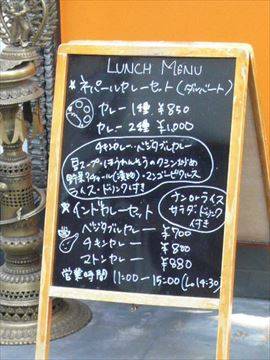 LUNCH MENU
※ネパールカレーセット(ダルバート)
カレー1種 ¥850
カレー2種 ¥1,000
チキンカレー・ベジタブルカレー
豆スープ・ほうれんそうのクミン炒め
野菜アチャール(漬物)・マンゴーピクルス
ライス・ドリンク付き
※インドカレーセット
ナンorライス
サラダ・ドリンク
付き
ベジタブルカレー ¥700
チキンカレー ¥800
マトンカレー ¥880
営業時間 11:00-15:00 (Lo.14:30)